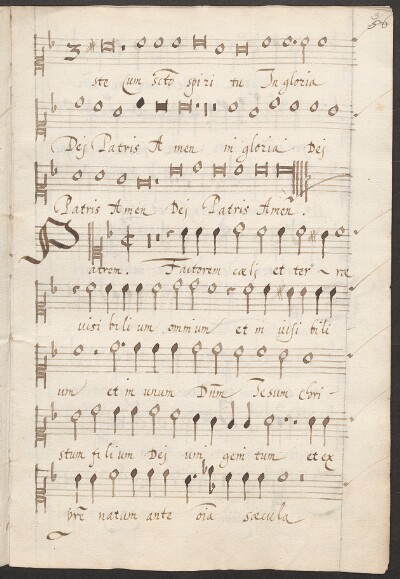 36
ste Cum scto spiri tu In gloria
Dej Patris A men in gloria Dej
Patris Amen Dej Patris Amen.
Patrem. Factorem cœli et ter- ræ
uisi bili um omnium et in uisi bili
um et in unum Dnm Iesum Chri-
stum filium Dej uni geni tum et ex
pre natum ante oia sæcula